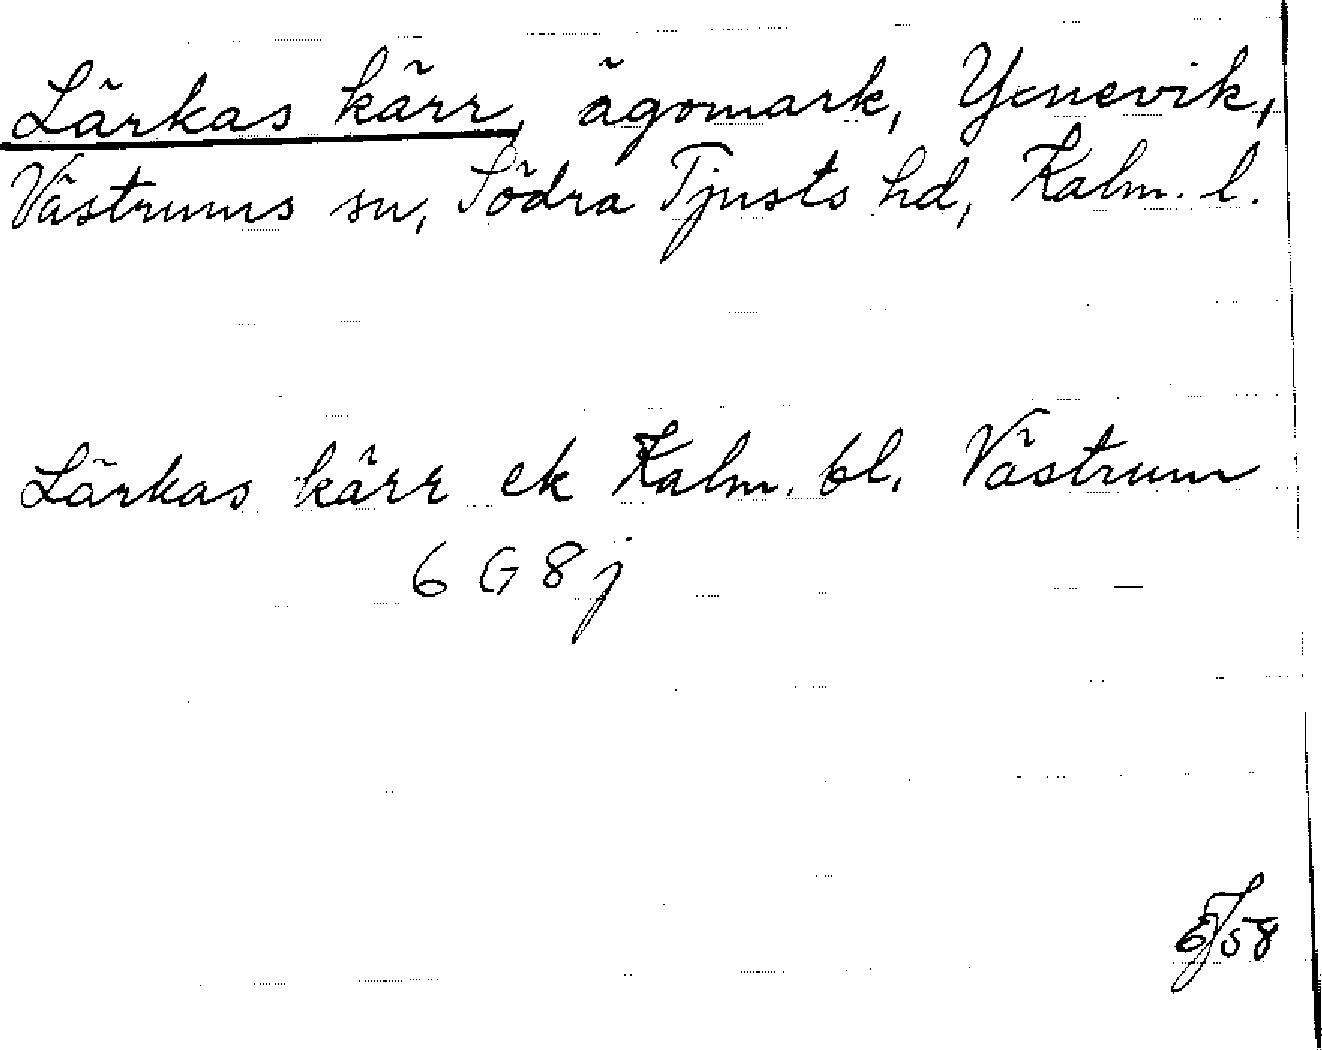 Lärkas kärr, ägomark, Ycnevik,
Västrums sn, Södra Tjusts hd, Kalm. l.
Lärkas kärr ek Kalm. bl. Västrum
6 G 8 j